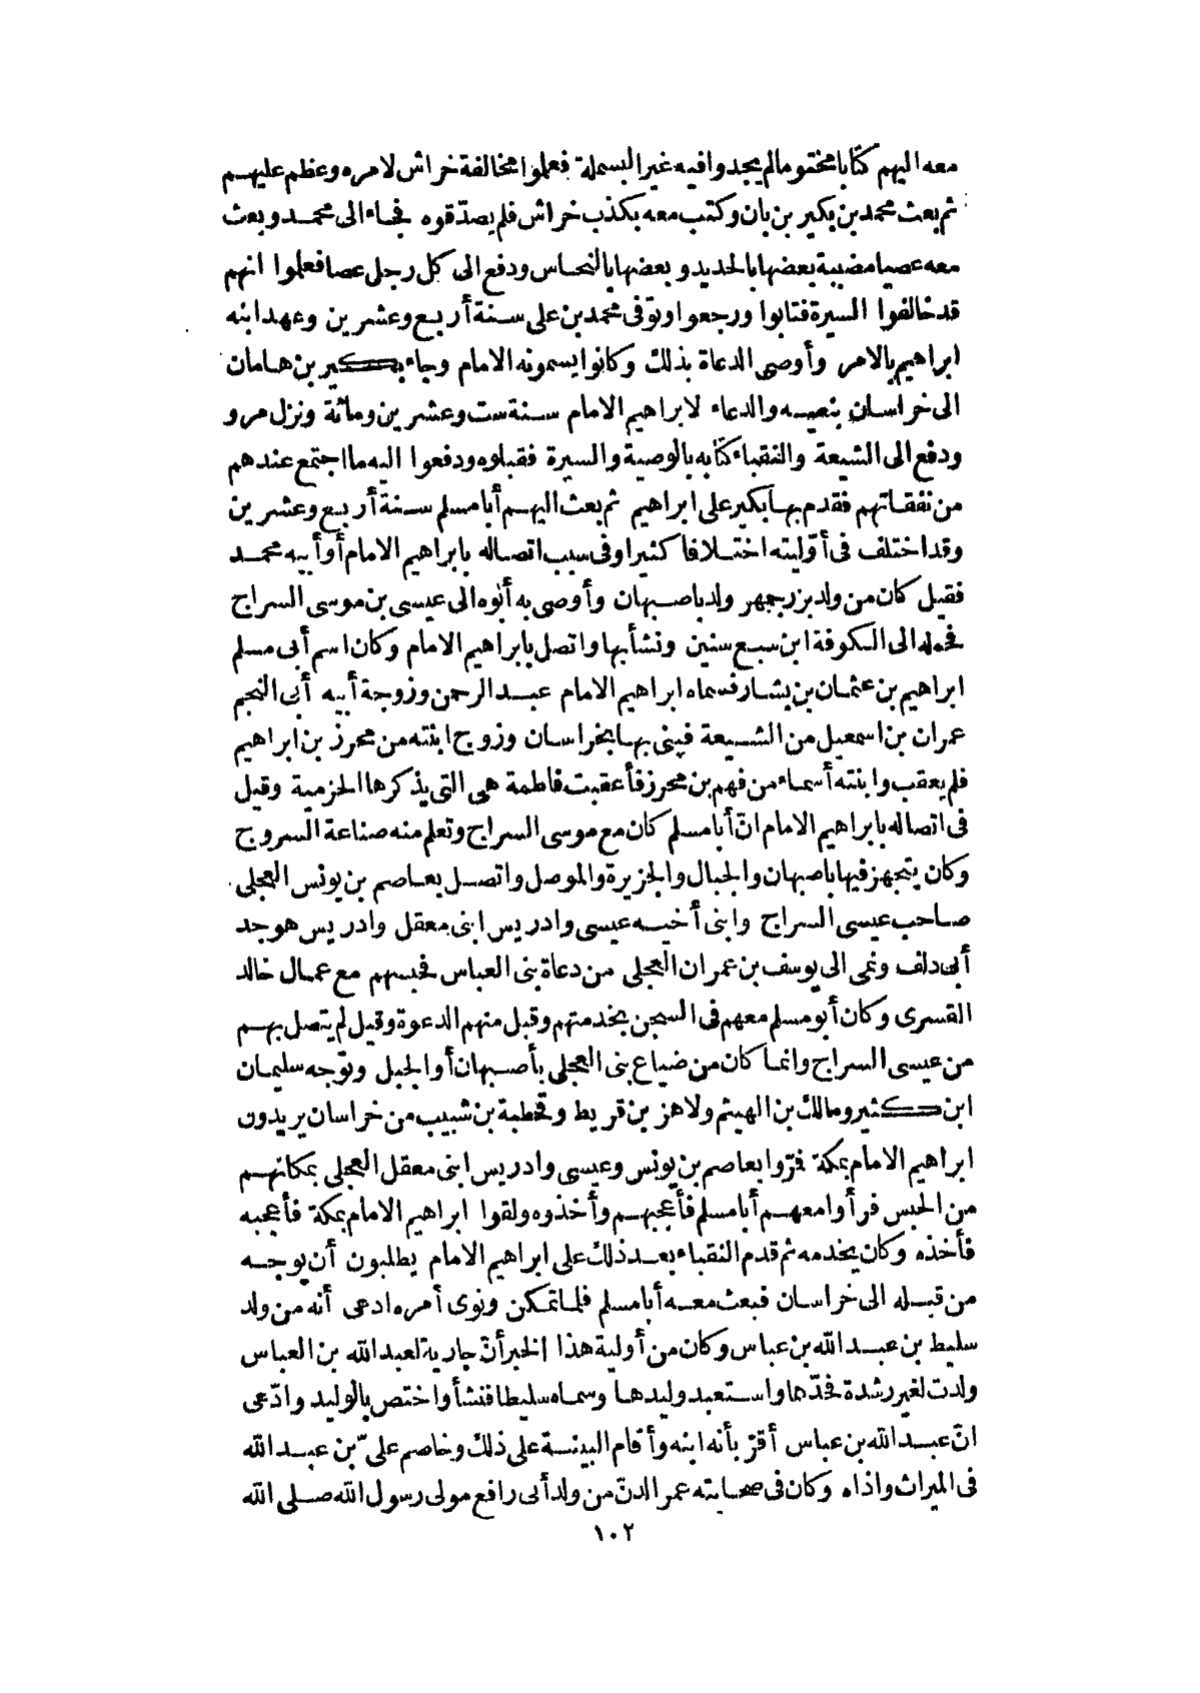 معه اليهم كتابا مختوما لم يجدوا فيه غير البسملة فعلموا مخالفة خراش لامره وعظم عليهم
ثم بعث محمد بن بكير بن بان وكتب معه بكذب خراش فلم يصدّقوه فجاء الى محمد وبعث
معه عصيا مضببة بعضها بالحديد وبعضها بالنحاس ودفع الى كل رجل عصا فعلموا انهم
قد خالفوا السيرة فتابوا ورجعوا وتوفى محمد بن على سنة أربع وعشرين وعهد ابنه
ابراهيم بالامر وأوصى الدعاة بذلك وكانوا يسمونه الامام وجاء بكير بن هامان
الى خراسان بنعيه والدعاء لابراهيم الامام سنة ست وعشرين ومائة ونزل مرو
ودفع الى الشيعة والنقباء كتابه بالوصية والسيرة فقبلوه ودفعوا اليه ما اجتمع عندهم
من نفقاتهم فقدم بها بكير على ابراهيم ثم بعث اليهم أبا مسلم سنة أربع وعشرين
وقد اختلف فى أوّليته اختلافا كثيرا وفى سبب اتصاله بابراهيم الامام أو أبيه محمد
فقيل كان من ولد بزرجمهر ولد باصبهان وأوصى به أبوه الى عيسى بن موسى السراج
فحمله الى الكوفة ابن سبع سنين ونشأ بها واتصل بابراهيم الامام وكان اسم أبى مسلم
ابراهيم بن عثمان بن بشار فسماه ابراهيم الامام عبد الرحمن وزوجة أبيه أبى النجم
عمران بن اسمعيل من الشيعة فبنى بها بخراسان وزوج ابنته من محرز بن ابراهيم
فلم يعقب وابنته أسماء من فهم بن محرز فأعقبت فاطمة هى التى يذكرها الخزمية وقيل
فى اتصاله بابراهيم الامام انّ أبا مسلم كان مع موسى السراج وتعلم منه صناعة السروج
وكان يتجهز فيها باصبهان والجبال والجزيرة والموصل واتصل بعاصم بن يونس العجلى
صاحب عيسى السراج وابنى أخيه عيسى وادريس ابنى معقل وادريس هو جد
أبى دلف ونمى الى يوسف بن عمران العجلى من دعاة بنى العباس فحبسهم مع عمال خالد
القسرى وكان أبو مسلم معهم فى السجن بخدمتهم وقبل منهم الدعوة وقيل لم يتصل بهم
من عيسى السراج وانما كان من ضياع بنى العجلى بأصبهان أو الجبل وتوجه سليمان
ابن كثير ومالك بن الهيثم ولاهز بن قريط وقحطبة بن شبيب من خراسان يريدون
ابراهيم الامام بمكة فرّوا بعاصم بن يونس وعيسى وادريس ابنى معقل العجلى بمكانهم
من الحبس فرأوا معهم أبا مسلم فأعجبهم وأخذوه ولقوا ابراهيم الامام بمكة فأعجبه
فأخذه وكان يخدمه ثم قدم النقباء بعد ذلك على ابراهيم الامام يطلبون أن يوجه
من قبله الى خراسان فبعث معه أبا مسلم فلما تمكن ونوى أمره ادعى أنه من ولد
سليط بن عبد الله بن عباس وكان من أولية هذا الخبر أنّ جارية لعبد الله بن العباس
ولدت لغير رشدة فحدّها واستعبد وليدها وسماه سليطا فنشأ واختص بالوليد وادّعى
انّ عبد الله بن عباس أقرّ بأنه ابنه وأقام البينة على ذلك وخاصم علىّ بن عبد الله
فى الميراث واذاه وكان فى صحابته عمر الدنّ من ولد أبى رافع مولى رسول الله صلى الله
١٠٢